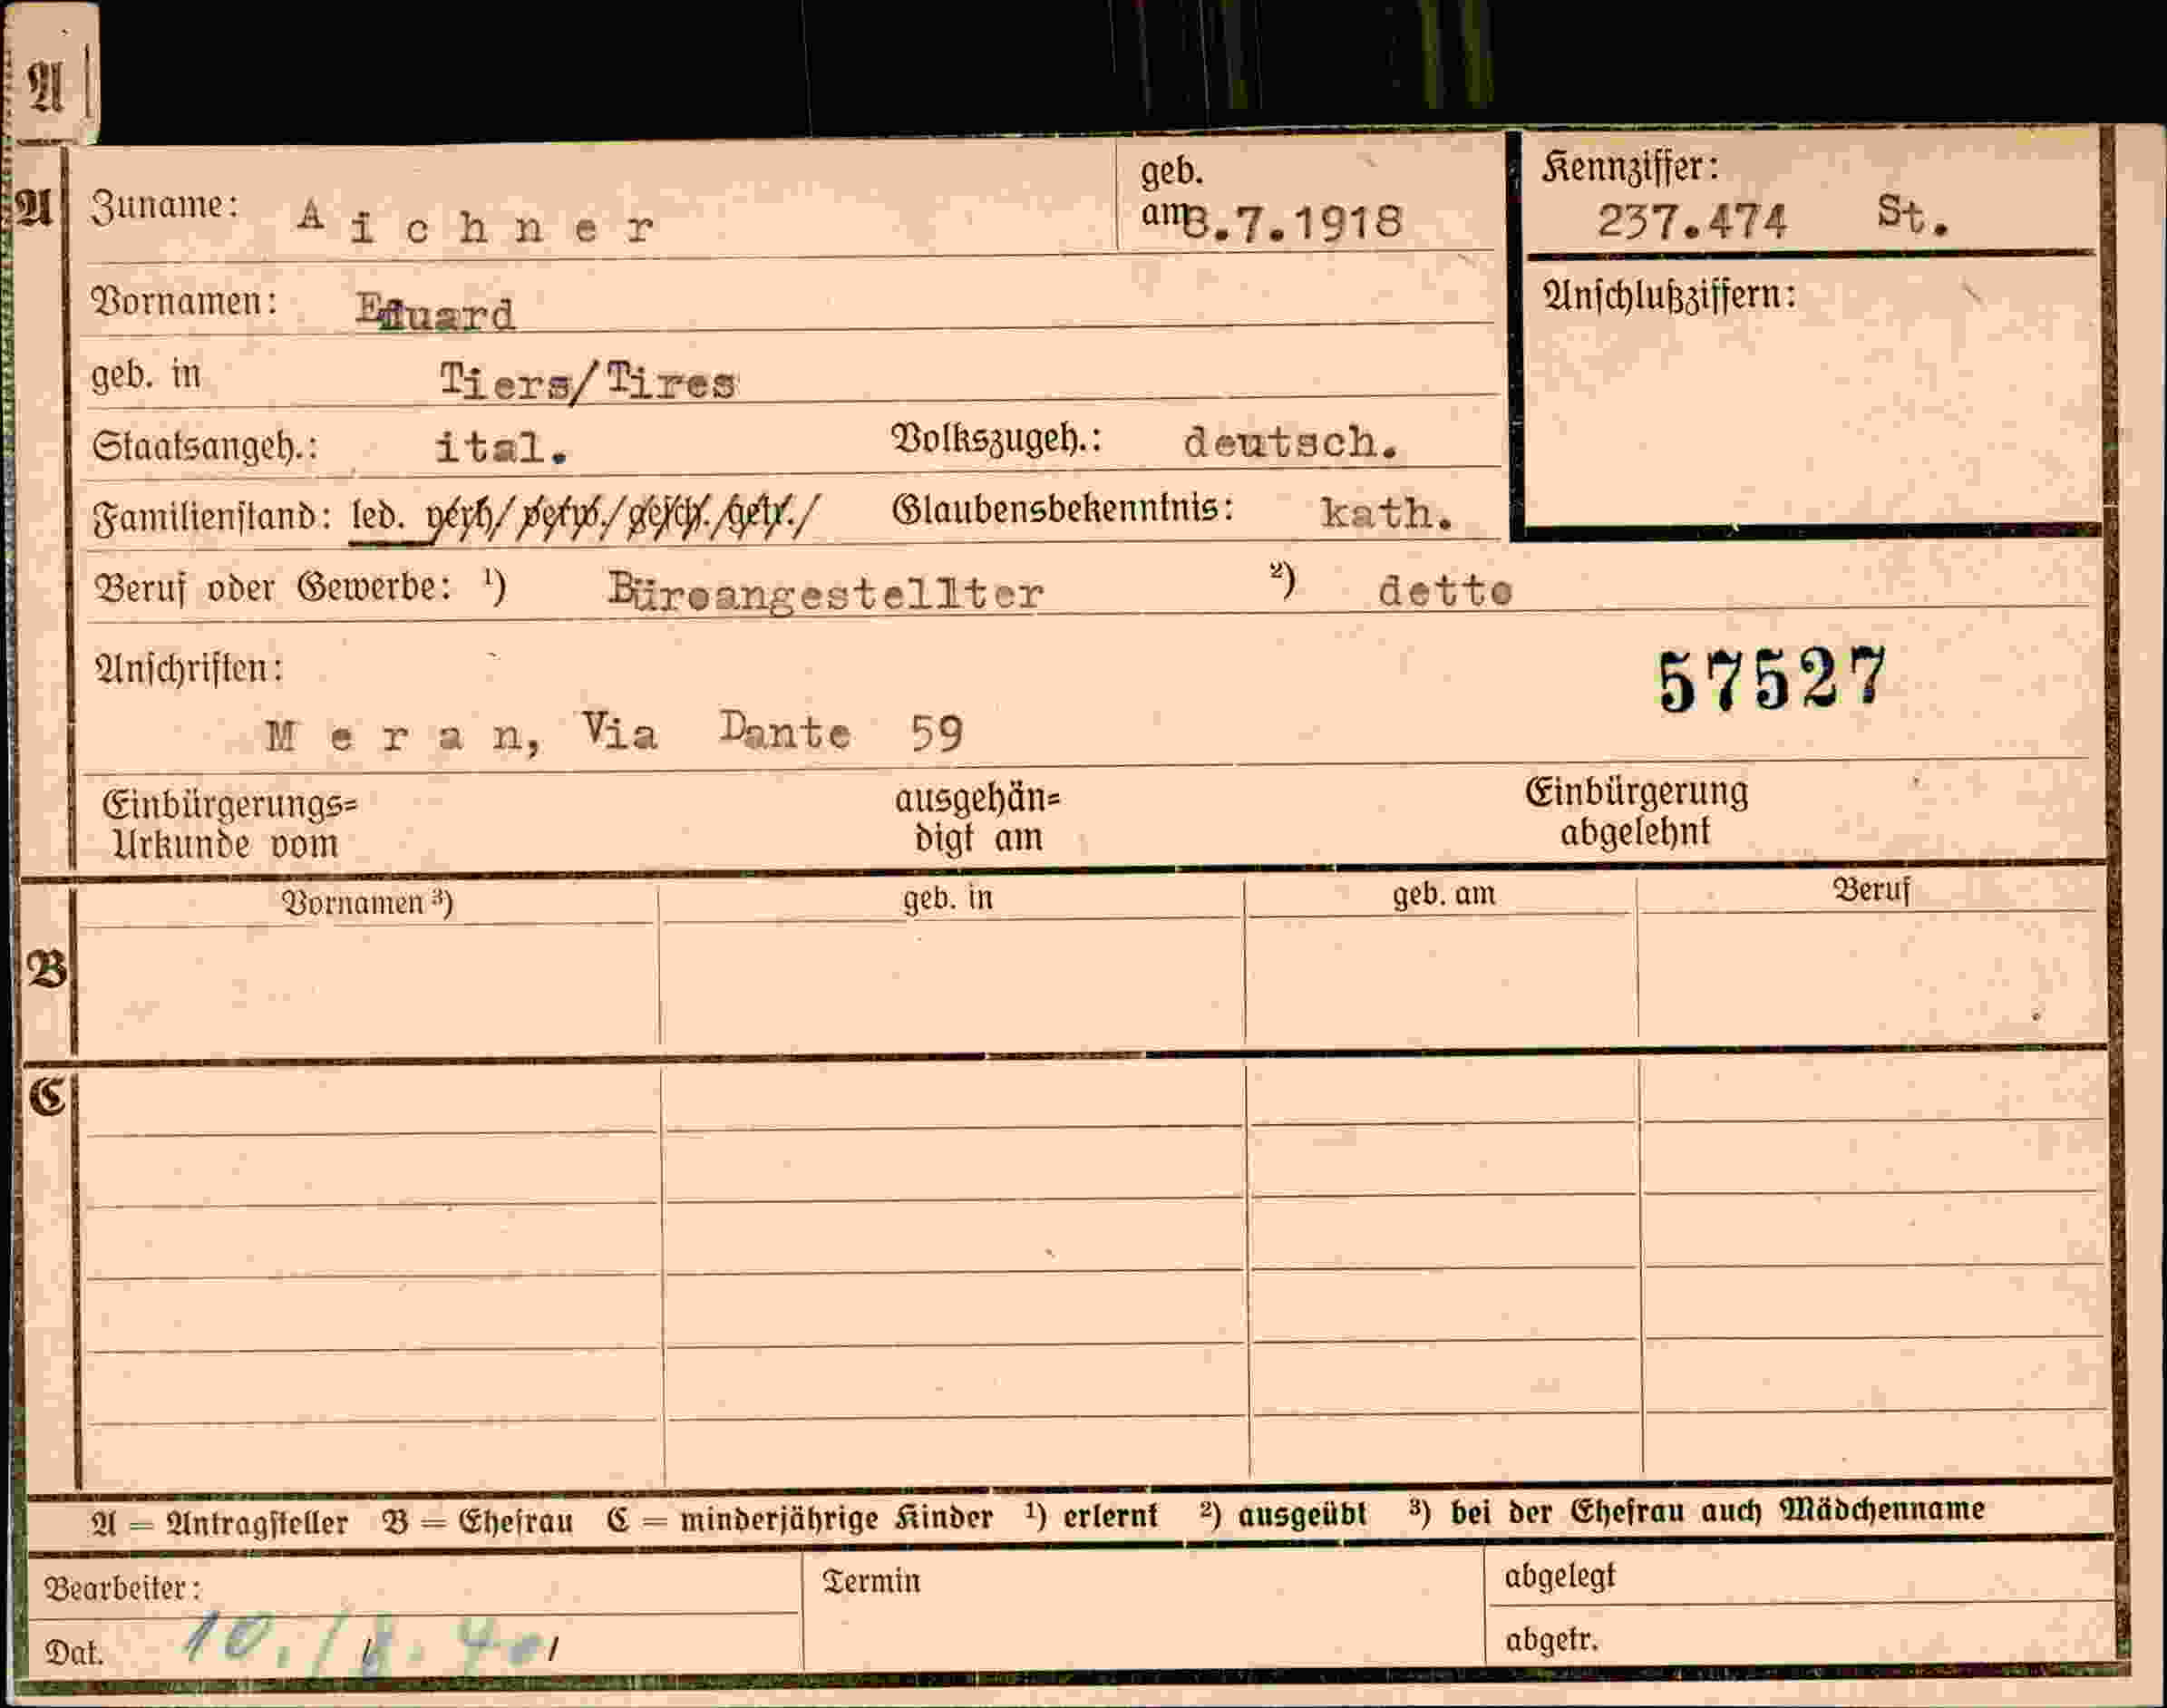 A
A Zuname: Aichner geb. am 8.7.1918 Kennziffer: 237.474 St.
Vornamen: Eduard Anschlußziffern:
geb. in Tiers/Tires
Staatsangeh.: ital. Volkszugeh.: deutsch.
Familienstand: led. verh/ verw./ gesch./ getr./ Glaubensbekenntnis: kath.
Beruf oder Gewerbe: ¹) Büroangestellter ²) detto
Anschriften: 57527
Meran, Via Dante 59
Einbürgerungs= ausgehän= Einbürgerung
Urkunde vom digt am abgelehnt
B Vornamen ³) geb. in geb. am Beruf
C
A = Antragsteller B = Ehefrau C = minderjährige Kinder ¹) erlernt ²) ausgeübt ³) bei der Ehefrau auch Mädchenname
Bearbeiter: Termin abgelegt
Dat. 10./8.40/ abgetr.